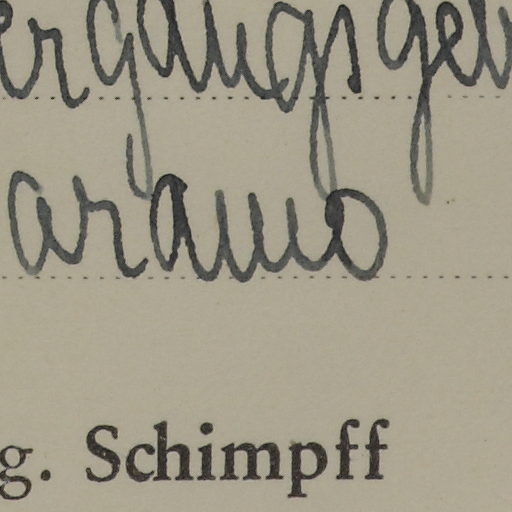 ergangsgeb
aramo
g. Schimpff